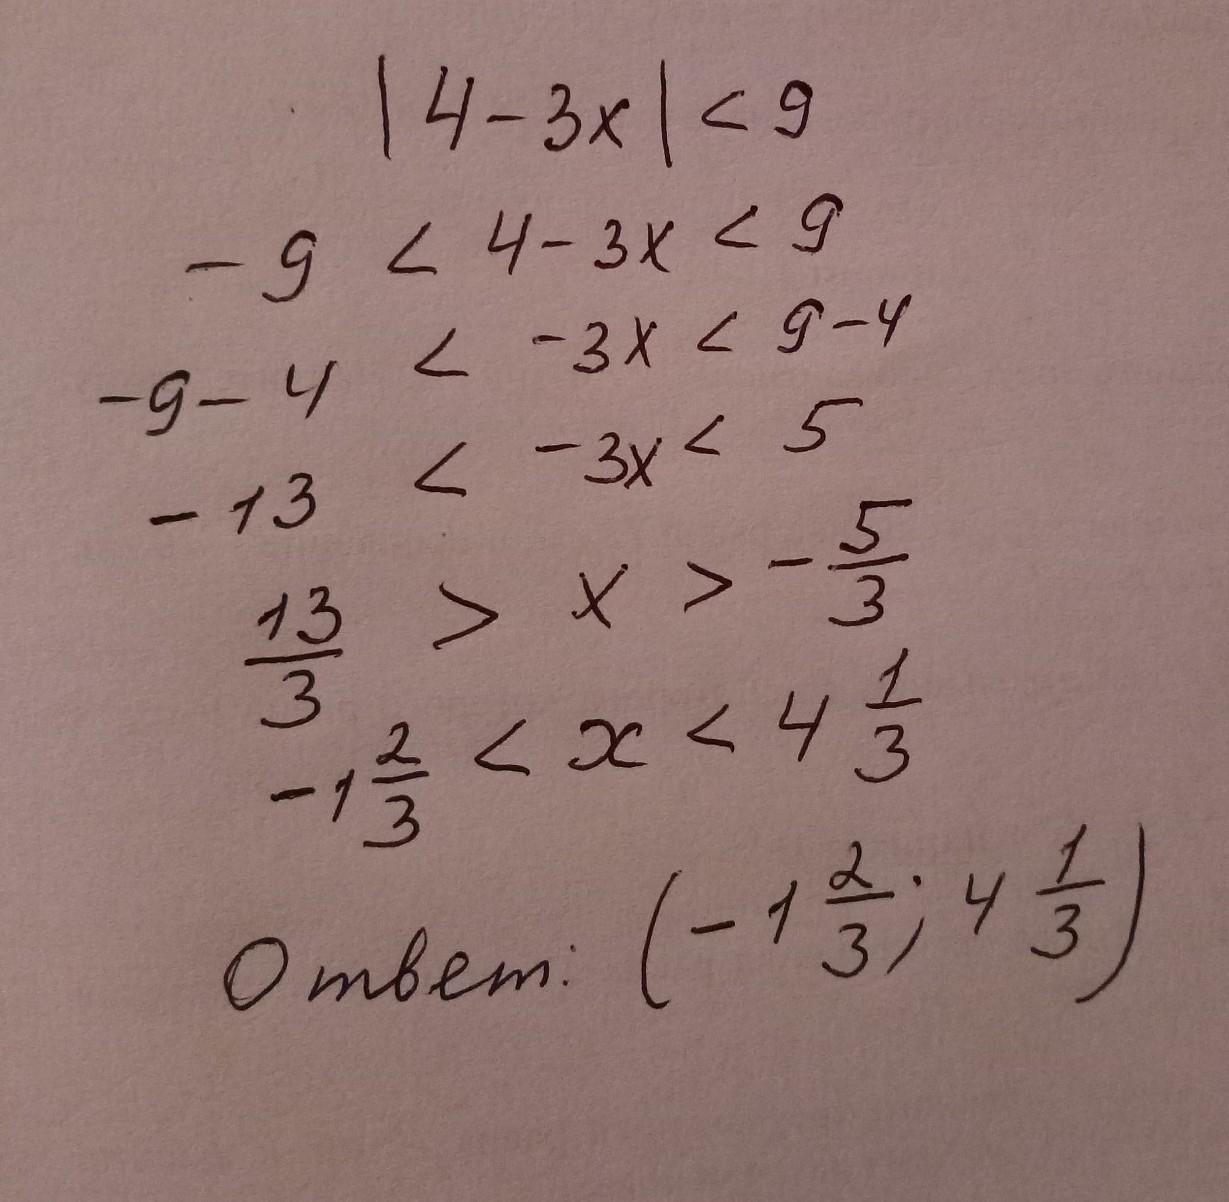 |4-3x| < 9
-9 < 4-3x < 9
-9-4 < -3x < 9-4
-13 < -3x < 5
13/3 > x > -5/3
-1 2/3 < x < 4 1/3
Ответ: (-1 2/3; 4 1/3)